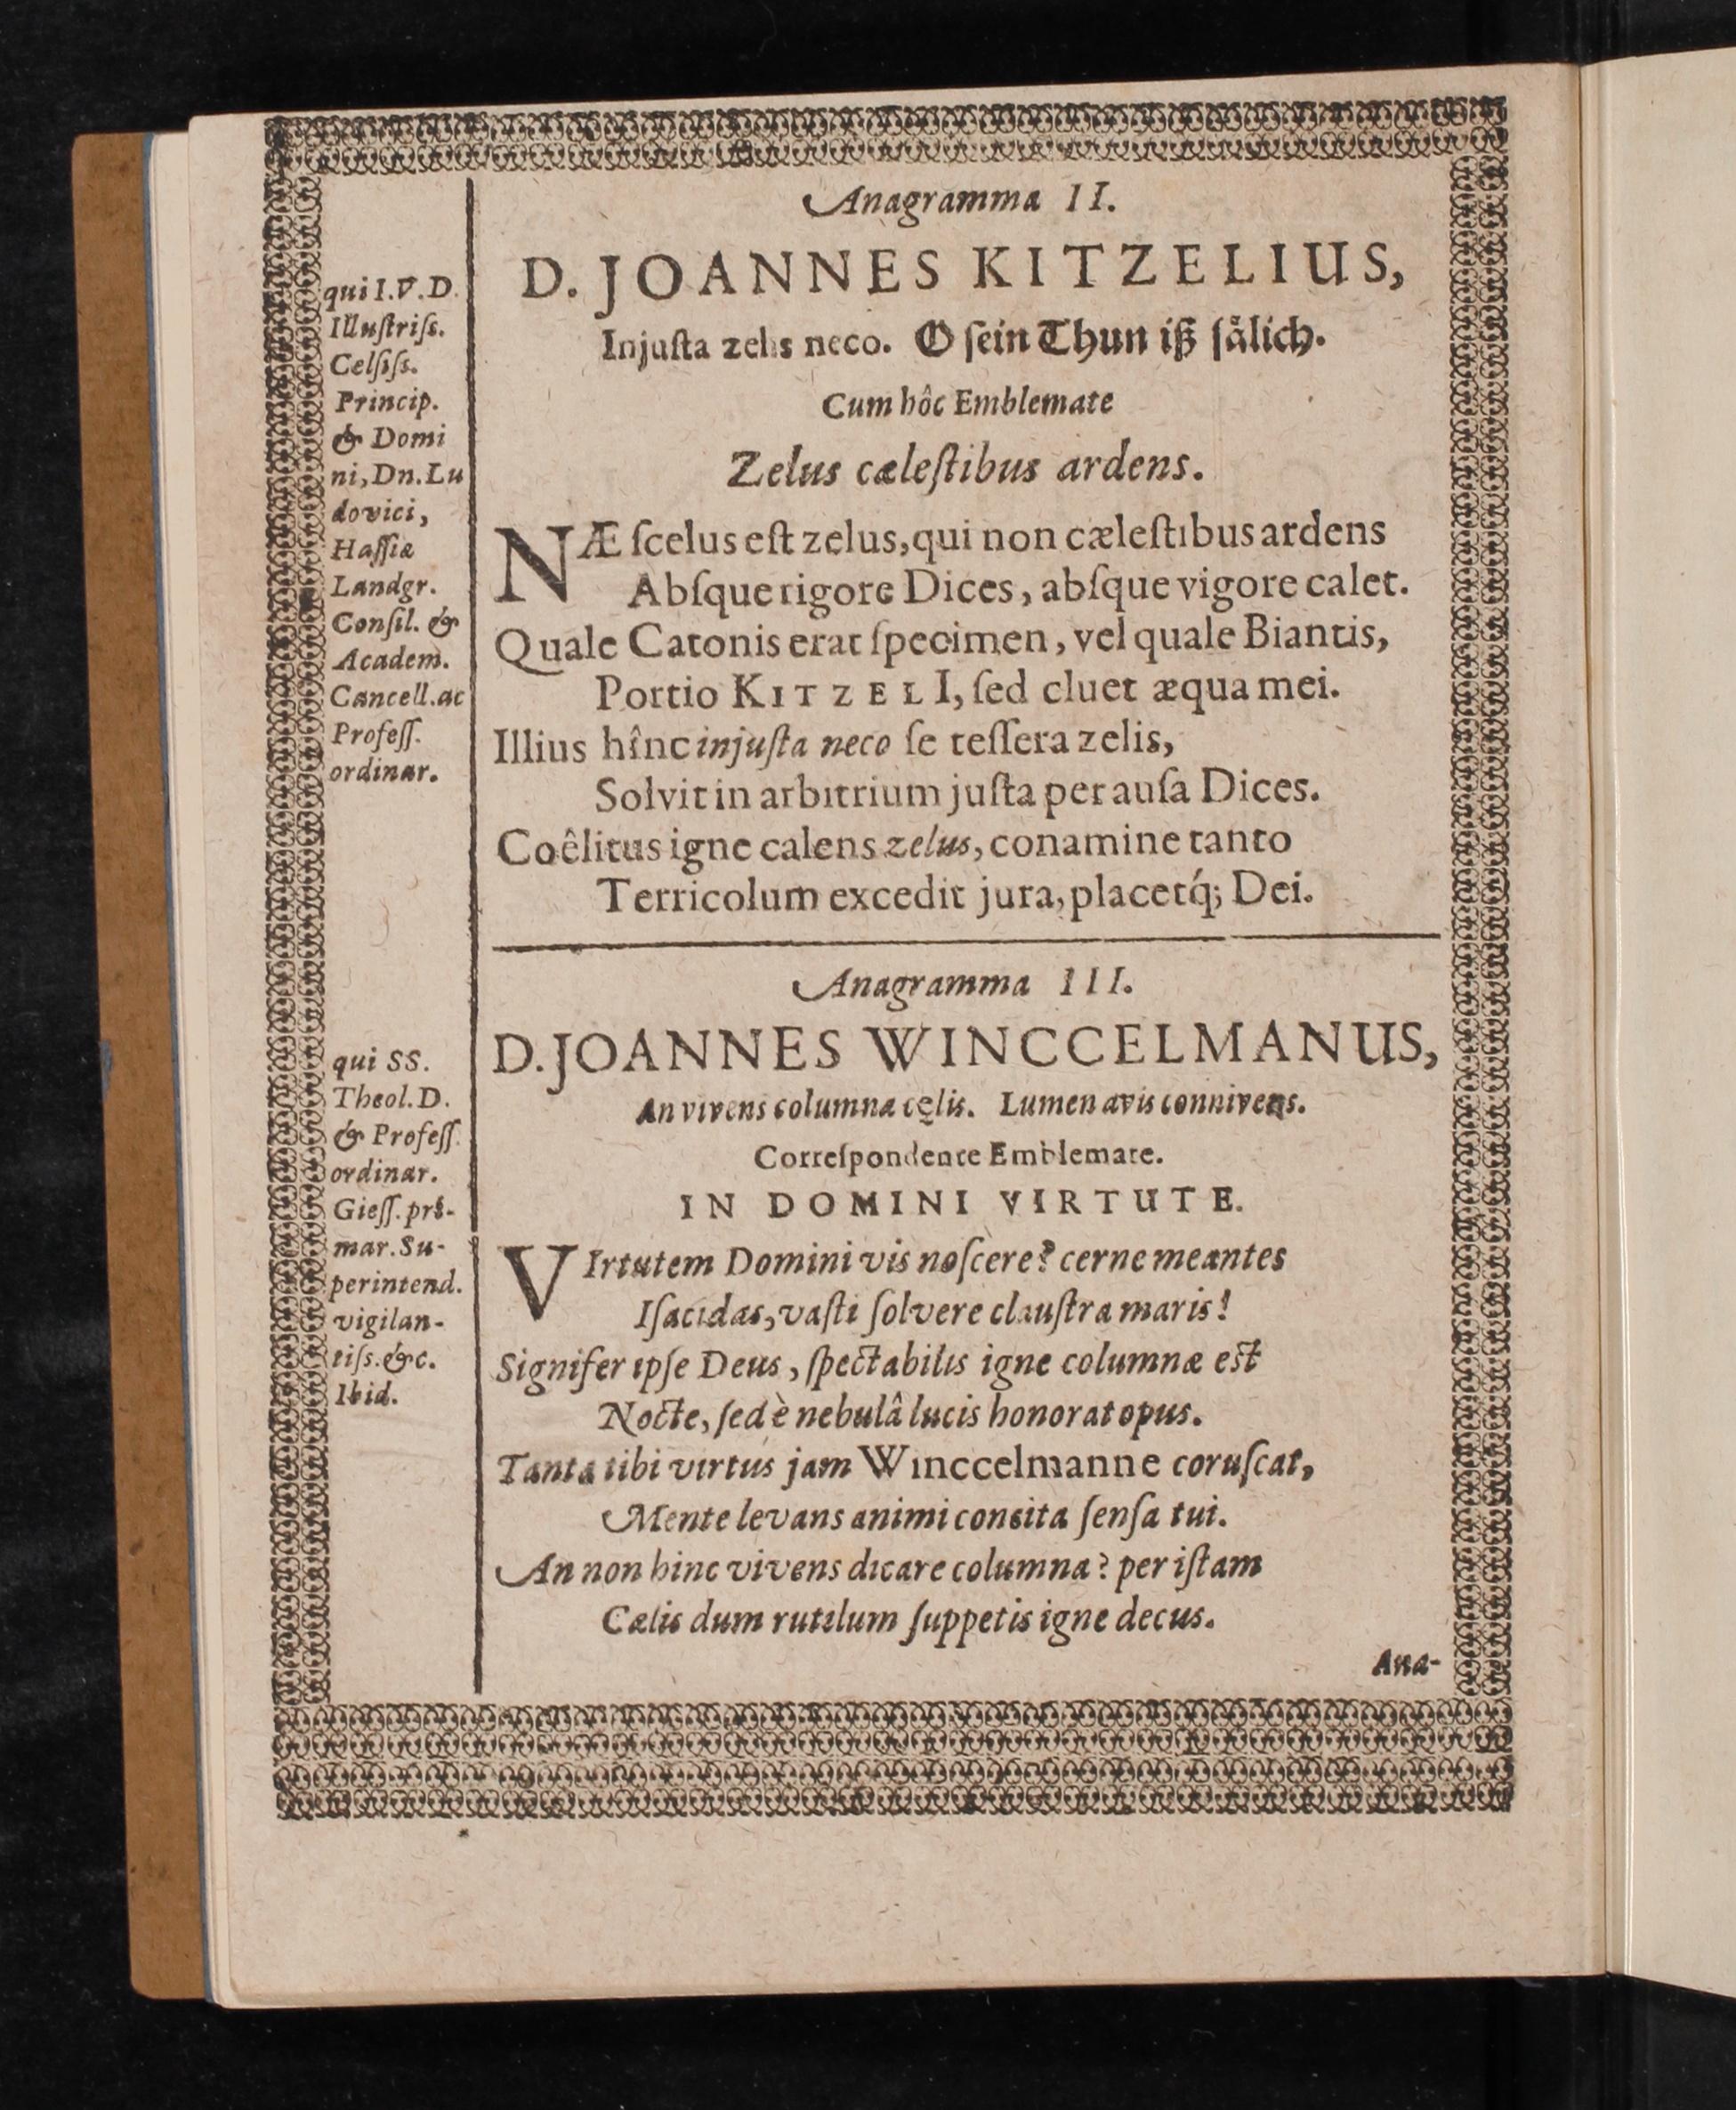 Anagramma II.
D. JOANNES KITZELIUS,
Injuſta zelis neco. O ſein Thun iß ſålich.
Cum hôc Emblemate
Zelus cæleſtibus ardens.
NÆ ſcelus eſt zelus, qui non cæleſtibus ardens
Abſque rigore Dices, abſque vigore calet.
Quale Catonis erat ſpecimen, vel quale Biantis,
Portio KITZELI, ſed cluet æqua mei.
Illius hînc injuſta neco ſe teſſera zelis,
Solvit in arbitrium juſta per auſa Dices.
Coêlitus igne calens zelus, conamine tanto
Terricolum excedit jura, placetq́; Dei.
qui I.V.D.
Illuſtriſs.
Celſiſs.
Princip.
& Domi
ni, Dn. Lu
dovici,
Haſſiæ
Landgr.
Conſil. &
Academ.
Cancell. ac
Profeſſ.
ordinar.
Anagramma III.
D. JOANNES WINCCELMANUS,
An vivens columna cęlis. Lumen avis connivens.
Correſpondente Emblemate.
IN DOMINI VIRTUTE.
VIrtutem Domini vis noſcere? cerne meantes
Iſacidas, vaſti ſolvere clauſtra maris!
Signifer ipſe Deus, ſpectabilis igne columnæ eſt
Nocte, ſed è nebulâ lucis honorat opus.
Tanta tibi virtus jam Winccelmanne coruſcat,
Mente levans animi concita ſenſa tui.
An non hinc vivens dicare columna? per iſtam
Cælis dum rutilum ſuppetis igne decus.
qui SS.
Theol. D.
& Profeſſ.
ordinar.
Gieſſ. pri-
mar. Su-
perintend.
vigilan-
tiſs. &c.
Ibid.
Ana-